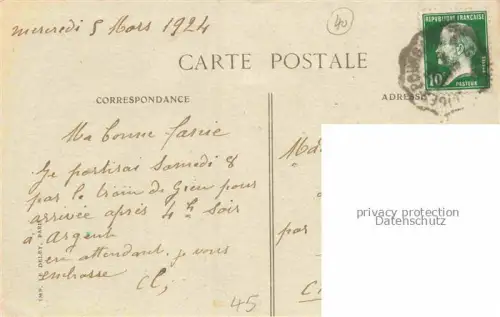 mercredi 5 Mars 1924
40
RÉPUBLIQUE FRANÇAISE
10
PASTEUR
CARTE POSTALE
CORRESPONDANCE
ADRESSE
Ma bonne
Je partirai Samedi 8
par le train de Gien pour
arrivée après 4h Soir
a Argent
en attendant je vous
embrasse
Cl,
par
privacy protection
Datenschutz
IMP. LE DELEY, PARIS
45